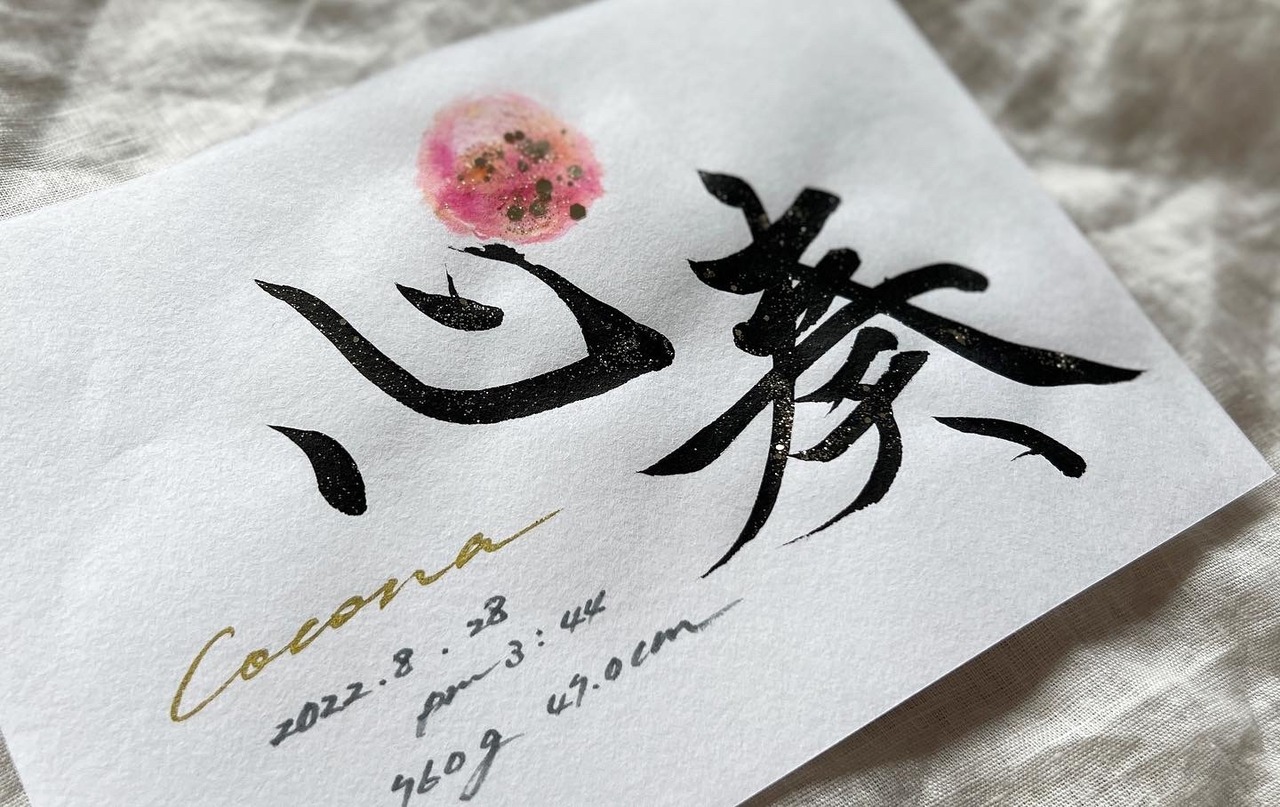 心奏
Cocona
2022.8.28
pm 3:44
460g 47.0cm